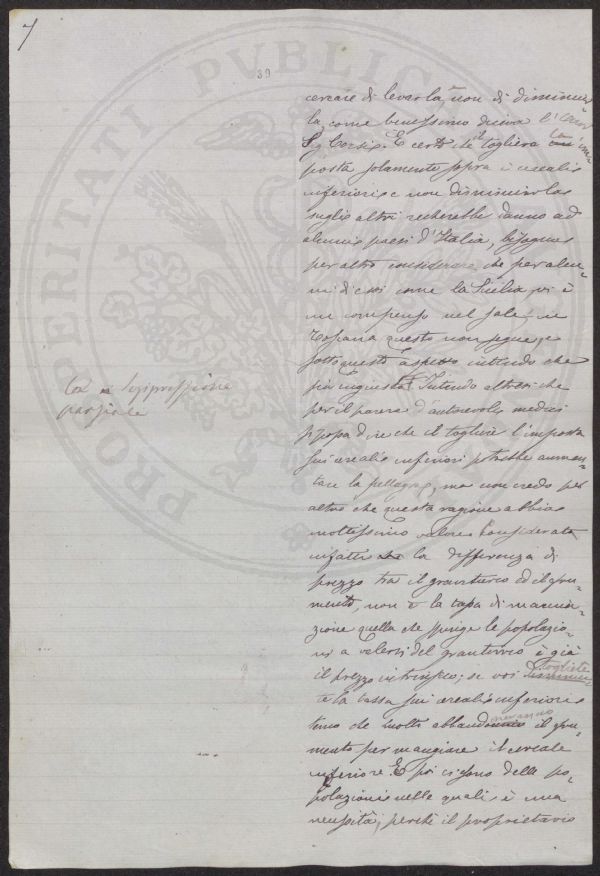 7
39
PROSPERITATI PUBLICAE
cercare di levarla, non di diminuir
la, come benissimo diceva l'
Sig. Corsi. È certo che il togliere la im
posta solamente sopra i cereali
inferiori e non diminuirla
sugli altri recherebbe danno ad
alcuni paesi d'Italia, bisogna
per altro considerare che per alcu-
ni di essi come la Sicilia vi è
un compenso nel sale; in
Toscana questo non segue, e
sotto questo aspetto intendo che
sia ingiusta. Intendo altresì che
per il parere d'autorevoli medici
si possa dire che il togliere l'imposta
sui cereali inferiori potrebbe aumen-
tare la pellagra, ma non credo per
altro che questa ragione abbia
moltissimo valore. Considerata
infatti la differenza di
prezzo tra il granturco ed il gru-
mento, non è la tassa di macina-
zione quella che spinge le popolazio-
ni a valersi del granturco è già
il prezzo intrinseco; se voi togliete
la tassa sui cereali inferiori
temo che molti abbandoneranno il gru-
mento per mangiare il cereale
inferiore. E poi ci sono delle po-
polazioni nelle quali è una
necessità, perché il proprietario
La soppressione
parziale